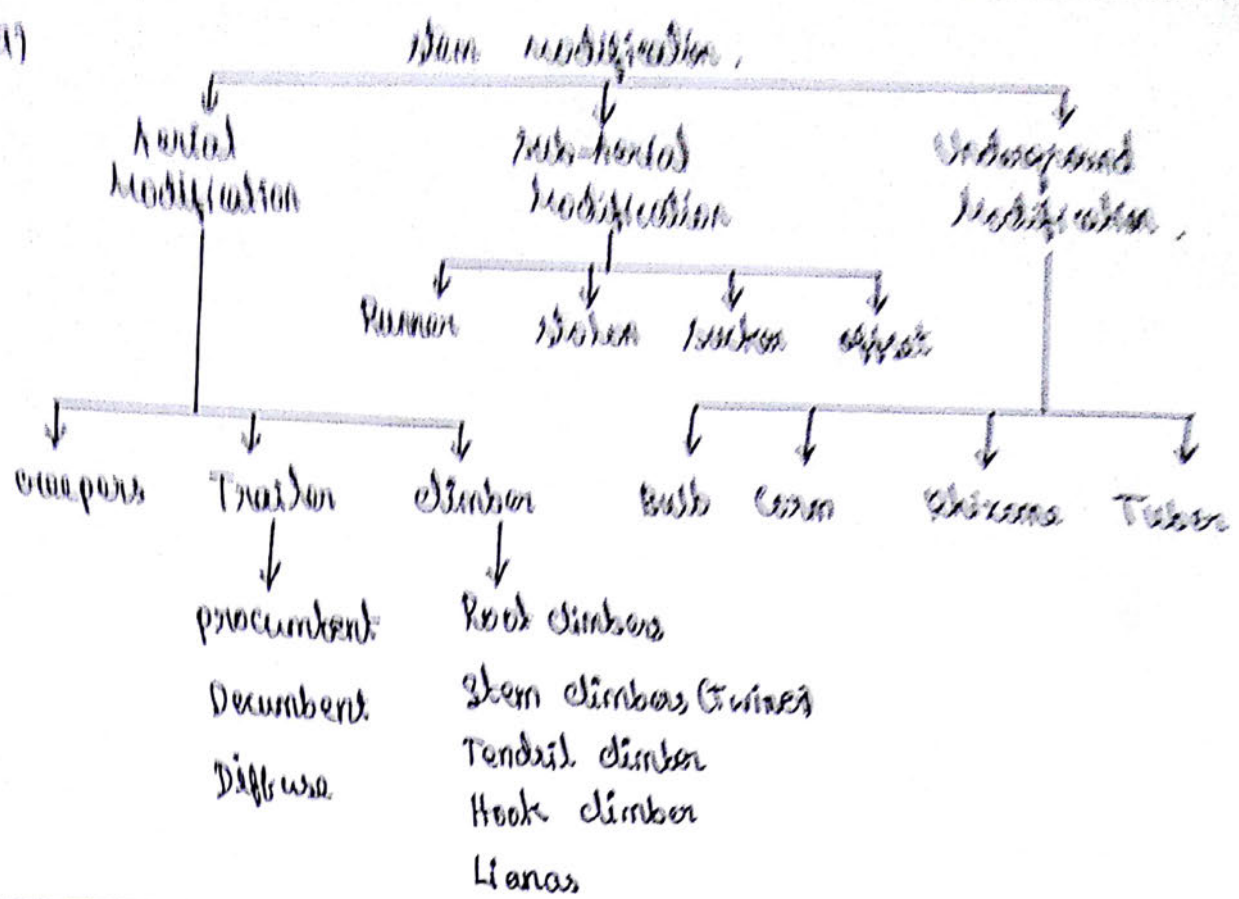 Stem modification.
Aerial
Modification
Sub-Aerial
Modification
Underground
Modification.
Runner Stolen Sucker offset
creepers Trailer climber
Bulb Corm Rhizome Tuber
procumbent
Decumbent
Diffuse
Root climbers
Stem climbers (Twines)
Tendril climber
Hook climber
Lianas